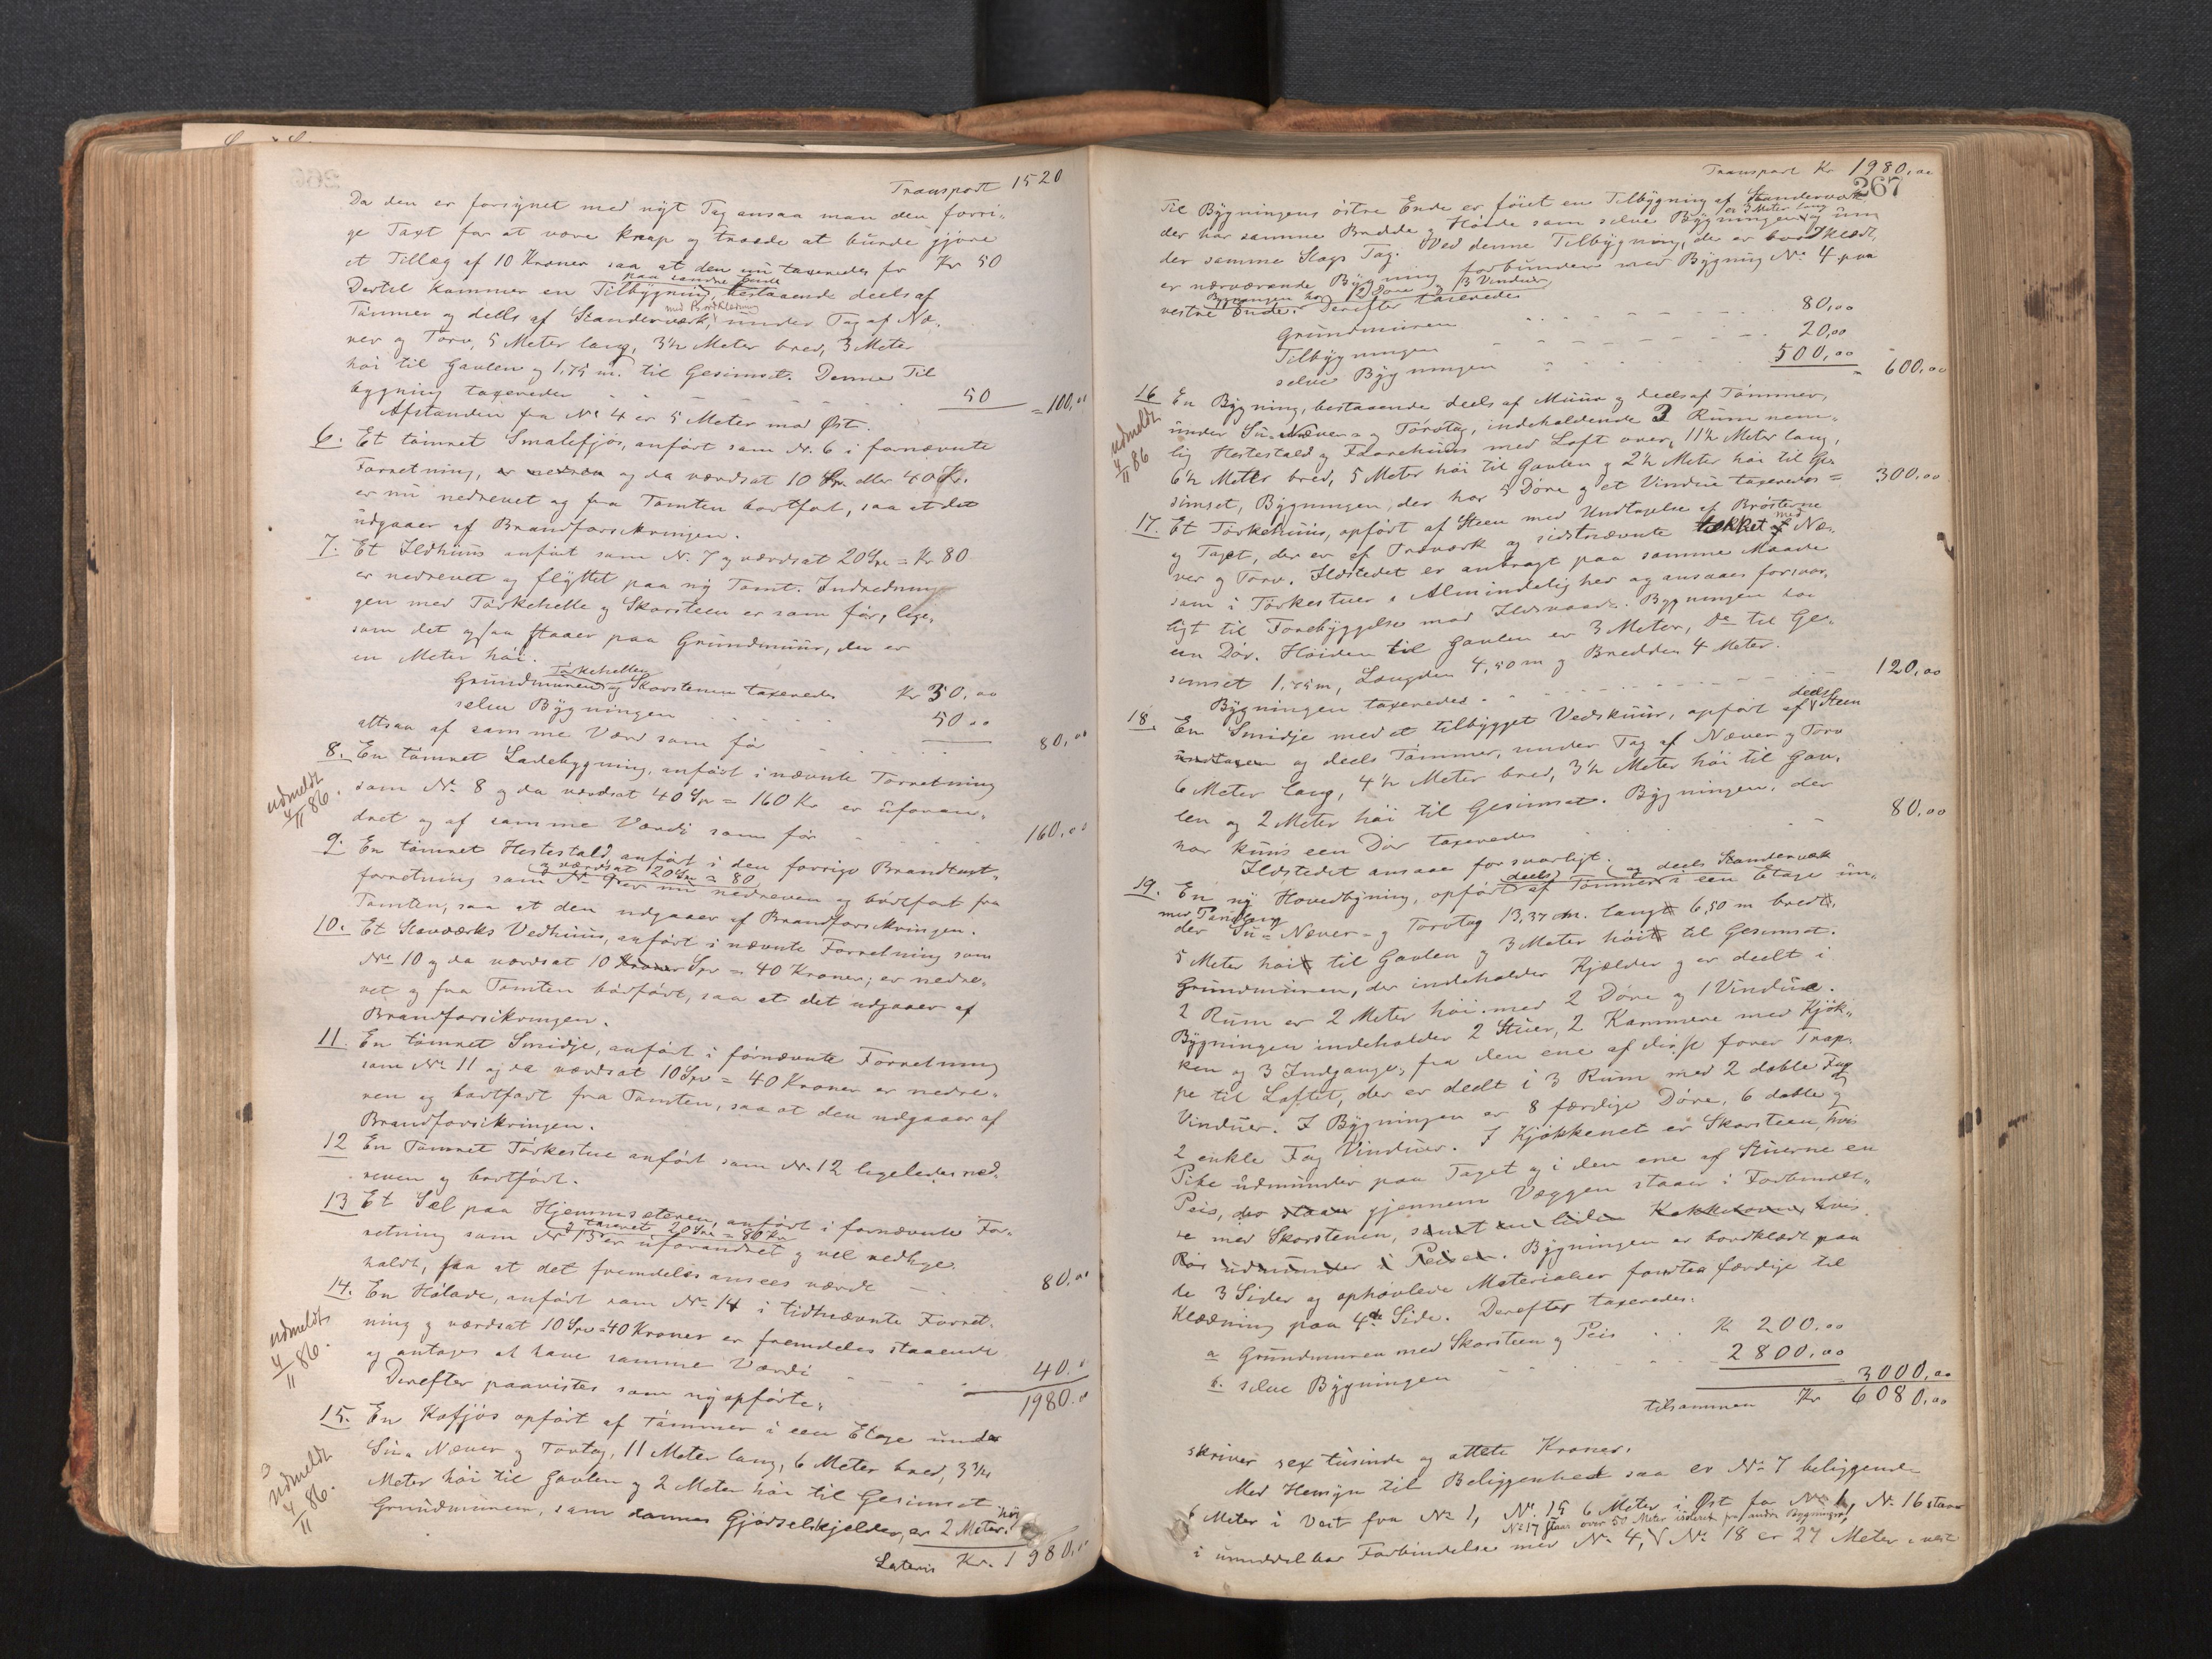 Transport 1520
Da den er forsynet med nyt Tag ansaa man den forri-
ge Taxt for at være knap og troede at burde gjøre
et Tillæg af 10 Kroner saa at den nu taxeredes for Kr 50
paa søndre Ende
Dertil kommer en Tilbygning, bestaaende deels af
med Bordklædning
Tømmer og deels af Standerværk, under Tag af Næ-
ver og Torv, 5 Meter lang, 3½ Meter bred, 3 Meter
høi til Gavlen og 1,75 m. til Gesimset. Denne Til
bygning taxeredes 50 = 100,00
Afstanden fra No 4 er 5 Meter mod Øst.
6. Et tømret Smalefjøs, anført som N. 6 i fornævnte
Forretning, er nedreven og da værdsat 10 Spr. eller 40 Kr.
er nu nedrevet og fra Tomten bortført, saa at det
udgaaer af Brandforsikringen.
7. Et Ildhuus anført som N. 7 og værdsat 20 Spr = Kr 80
er nedrevet og flyttet paa ny Tomt. Indrednin-
gen med Tørkehelle og Skorsteen er som før, lige-
som det ogsaa staaer paa Grundmuur, der er
en Meter høi.
Tørkehellen
Grundmuren og Skorstenen taxeredes Kr 30,00
selve Bygningen 50 00
altsaa af samme Værd som før 80,00
8. En tømret Ladebygning, anført i nævnte Forretning
udmeldt 4/11 86.
som No 8 og da værdsat 40 Spr = 160 Kr er uforan-
dret og af samme Værdi som før 160,00
9. En tømret Hestestald, anført i den forrige Brandtaxt-
og værdsat 20 Spr = 80
forretning som No 9 er nu nedreven og bortført fra
Tomten, saa at den udgaaer af Brandforsikringen.
10. Et Stavværks Vedhuus, anført i nævnte Forretning som
No 10 og da værdsat 10 Kroner Spr = 40 Kroner; er nedre-
vet og fra Tomten bortført, saa at det udgaaer af
Brandforsikringen.
11. En tømret Smidje, anført i førnævnte Forretning
som No 11 og da værdsat 10 Spr = 40 Kroner er nedre-
ven og bortført fra Tomten, saa at den udgaaer af
Brandforsikringen.
12 En Tømret Tørkestue anført som N. 12 ligeledes ned-
reven og bortført.
13 Et Sæl paa Hjemmsæteren, anført i fornævnte For-
og taxeret 20 Spr = 80 Kr
retning som N 13 er uforandret og vel vedlige-
holdt, saa at det fremdeles ansees værdt 80,00
14. En Hølade, anført som No 14 i tidtnævnte Forret-
udmeldt 4/11 86.
ning og værdsat 10 Spr = 40 Kroner er fremdeles staaende
og antages at have samme Værdi 40.0
Derefter paavistes som nyopførte: 1980.0
15. En Kofjøs opført af Tømmer i een Etage under
Su- Næver og Torvtag, 11 Meter lang, 6 Meter bred, 3¾
udmeldt 4/11 86.
Meter høi til Gavlen og 2 Meter høi til Gesimset
Grundmuren, som danner Gjødselskjelder, er 2 Meter høi.
Lateris Kr. 1980,00
Transport Kr 1980,00
267
Til Bygningens østre Ende er føiet en Tilbygning af Standerværk
er 3 Meter lang
der har samme Bredde og Høide som selve Bygningen og un
der samme Slags Tag. Ved denne Tilbygning, der er bordklædt,
er nærværende Bygning forbunden med Bygning No 4 paa
Bygningen har 2 Døre og 3 Vinduer
vestre Ende. Derefter taxeredes
Grundmuren 80,00
Tilbygningen 20,00
selve Bygningen 500,00 = 600,00
16 En Bygning, bestaaende deels af Muur og deels af Tømmer,
udmeldt 4/11 86
under Su- Næver- og Torvtag, indeholdende 3 Rum nem-
lig Hestestald og Faarehuus med Loft over, 11½ Meter lang,
6½ Meter bred, 5 Meter høi til Gavlen og 2½ Meter høi til Ge-
simset, Bygningen, der har 5 Døre og et Vindue taxeredes = 300,00
17. Et Tørkehuus, opført af Steen med Undtagelse af Brøsterne
og Taget, der er af Træværk og sidstnævnte tækket med Næ-
ver og Torv. Ildstedet er anbragt paa samme Maade
som i Tørkestuer i Almindelighed og ansaaes forsvar-
ligt til Forebyggelse mod Ildsvaade. Bygningen har
een Dør. Høiden til Gavlen er 3 Meter, Do til Ge-
simset 1,75 m, Længden 4,50 m og Bredden 4 Meter.
Bygningen taxeredes 120,00
18. En Smidje med et tilbygget Vedskuur, opført af deels Steen
undtagen og deels Tømmer, under Tag af Næver og Torv
6 Meter lang, 4½ Meter bred, 3½ Meter høi til Gav-
len og 2 Meter høi til Gesimset. Bygningen, der
har kuns een Dør taxeredes 80,00
Ildstedet ansaaes forsvarligt.
19. En ny Hovedbygning, opført deels af Tømmer og deels Standerværk i een Etage un-
med Panelsning
der Su- Næver- og Torvtag 13,37 m. langt 6,50 m bredt,
5 Meter høit til Gavlen og 3 Meter høit til Gesimset.
Grundmuren, der indeholder Kjælder og er deelt i
2 Rum er 2 Meter høi med 2 Døre og 1 Vindue.
Bygningen indeholder 2 Stuer, 2 Kammere med Kjøk-
ken og 3 Indgange, fra den ene af disse fører Trap-
pe til Loftet, der er deelt i 3 Rum med 2 doble Fag
Vinduer. I Bygningen er 8 færdige Døre, 6 doble og
2 enkle Fag Vinduer. I Kjøkkenet er Skorsteen, hvis
Pibe udmunder paa Taget og i den ene af Stuerne en
Peis, der staaer gjennem Væggen staaer i Forbindel-
se med Skorstenen, samt en liden Kokkeovn, hvis
Rør udmunder i Peisen. Bygningen er bordklædt paa
de 3 Sider og ophøvlede Materialier fandtes færdige til
Klædning paa 4de Side. Derefter taxeredes:
a Grundmuren med Skorsteen og Peis Kr 200,00
b. selve Bygningen 2800,00 = 3000,00
tilsammen Kr 6080,00
skriver sex tusinde og ottete Kroner.
Med Hensyn til Beliggenhed saa er No 7 beliggende
6 Meter i Vest fra No 1, No 15 6 Meter i Øst for No 1, No 16 staar
No 17 staar over 50 Meter isoleret fra andre Bygninger,
i umiddelbar Forbindelse med No 4, No 18 er 27 Meter i vest